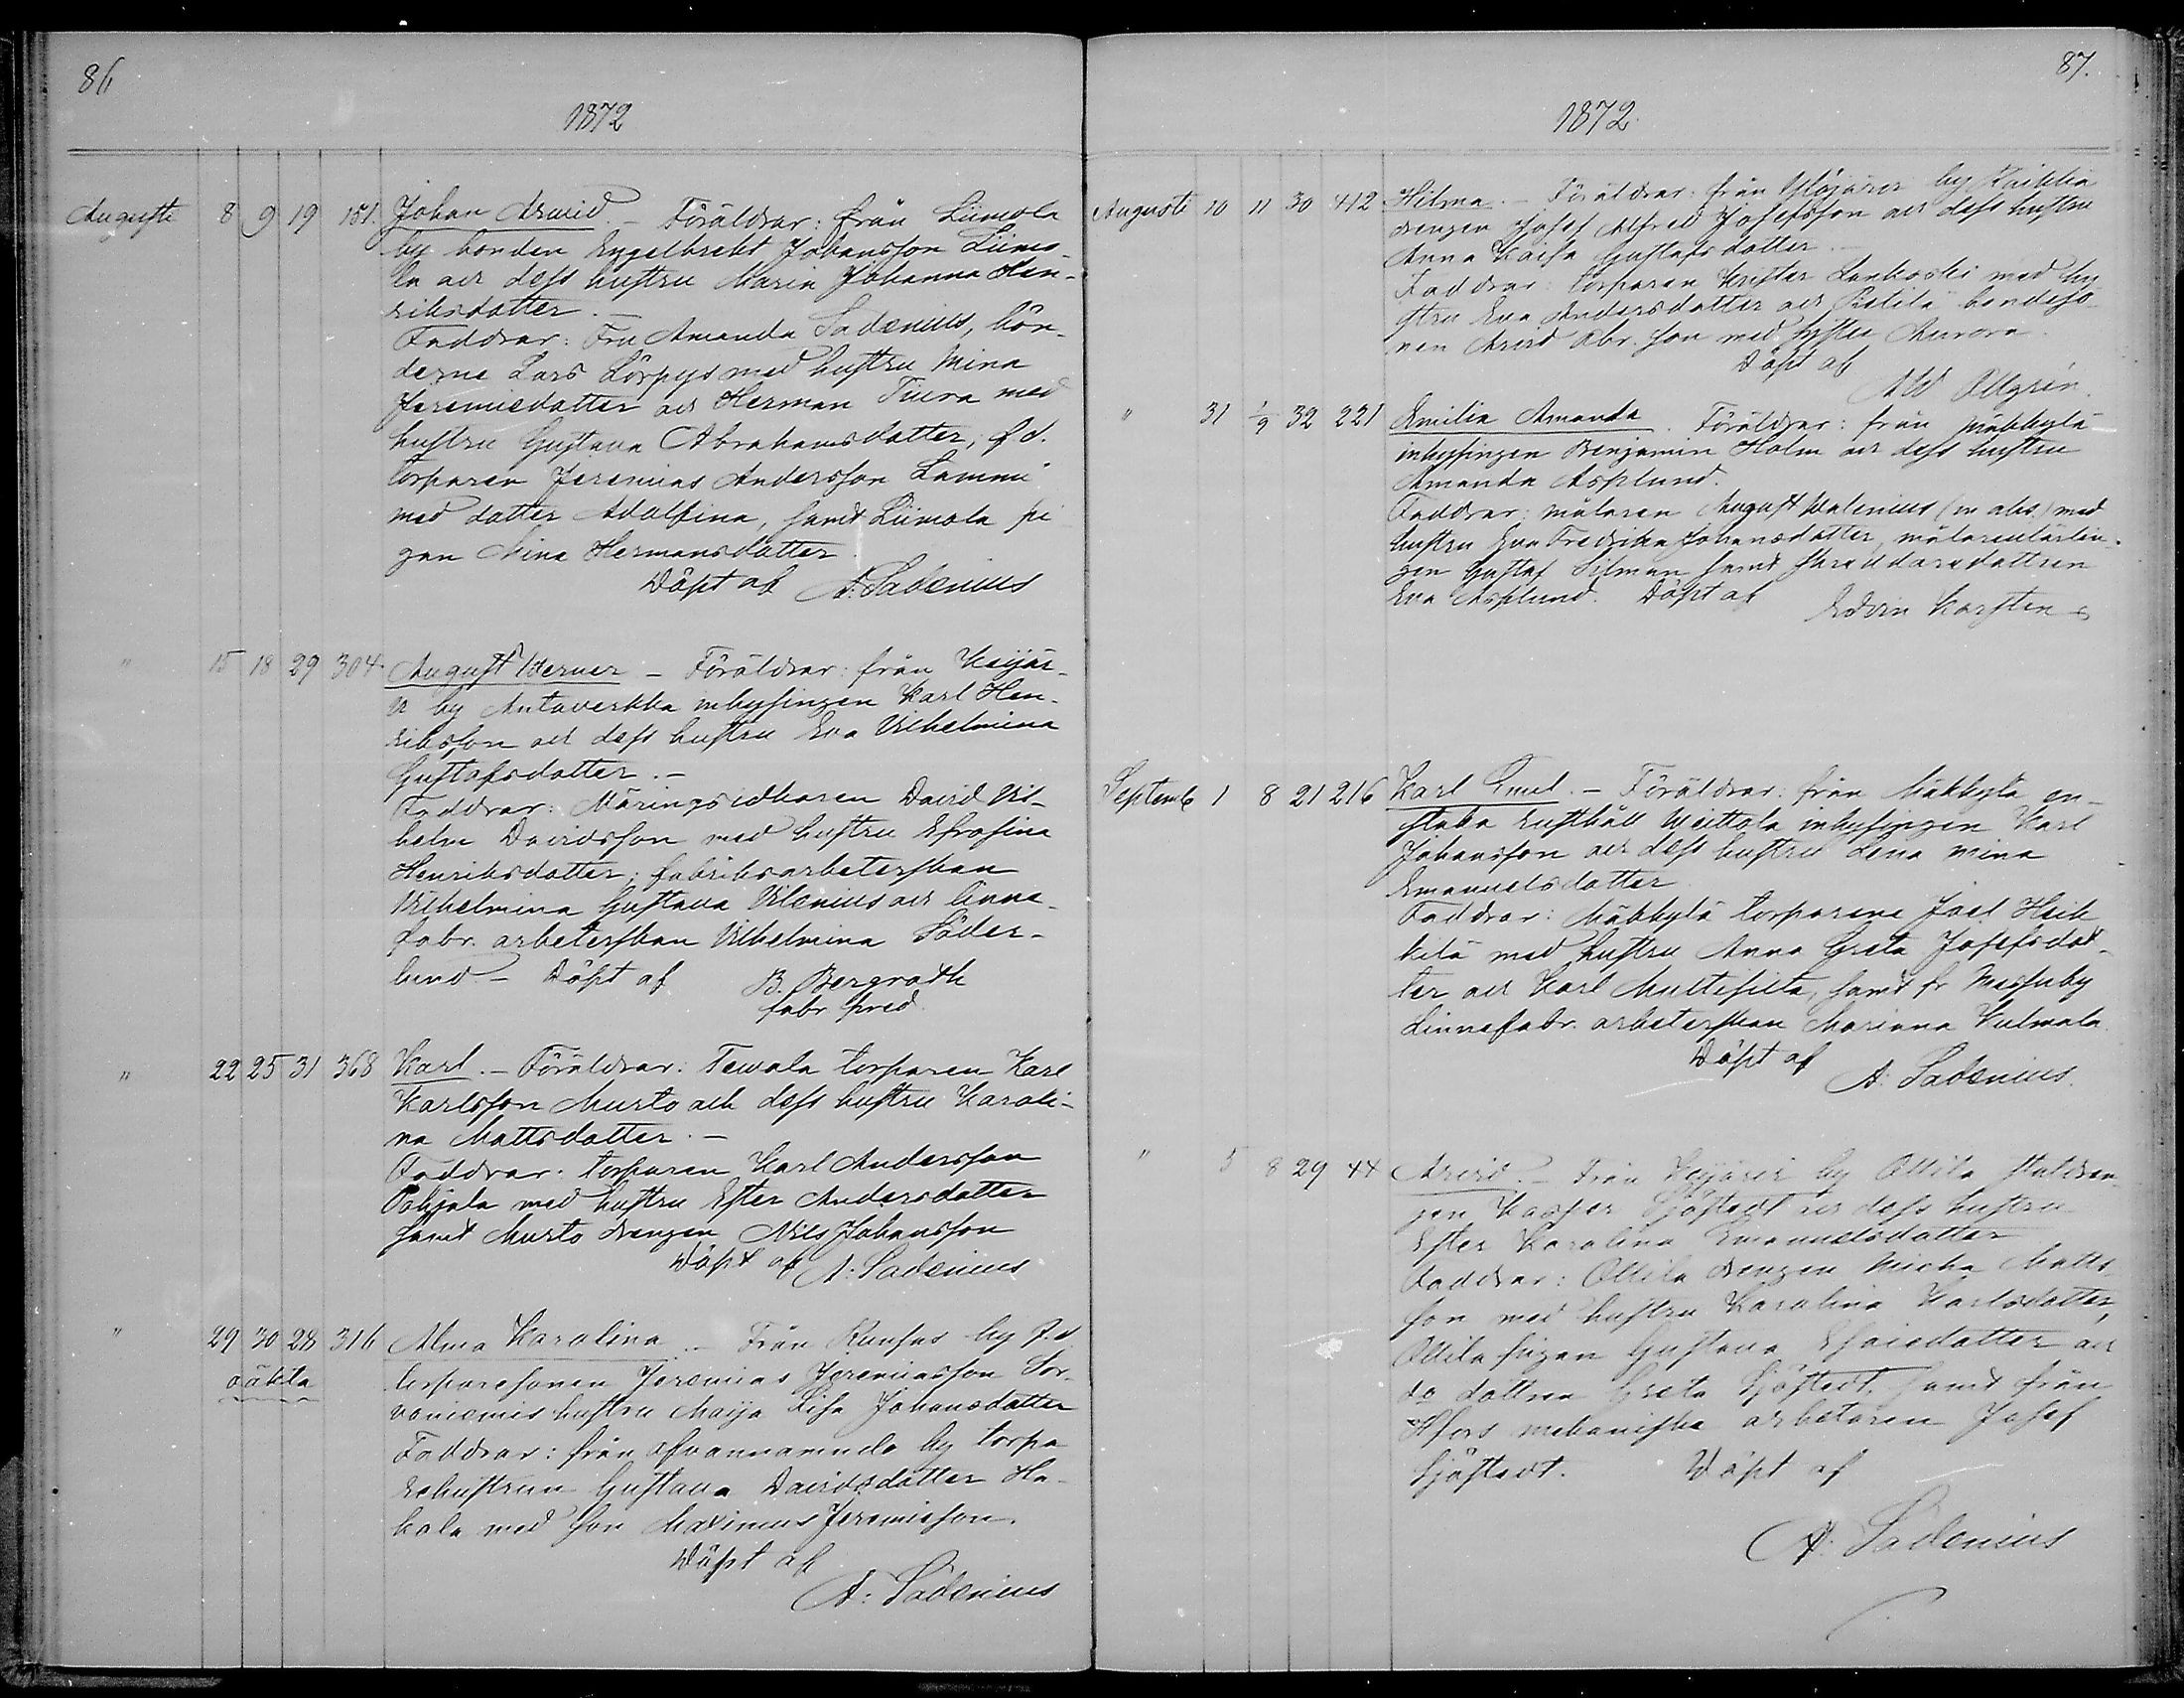 86
1872
Augusti 8 9 19 151. Johan Arvid. - Föräldrar: från Liimola
by bonden Engelbrekt Johansson Liimo-
la och dess hustru Maria Johanna Hen-
riksdotter. -
Faddrar: Fru Amanda Sadenius, bön-
derne Lars Lörpys med hustru Mina
Jeremiedotter och Herman Tiura med
hustru Gustava Abrahamsdotter, f.d.
torparen Jeremias Andersson Lammi
med dotter Adolfina, samt Liimola pi
gan Mina Hermansdotter.
Döpt af A: Sadenius
" 15 18 29 304. August Verner - Föräldrar: från Keijär-
vi by Antaverkka inhysingen Karl Hen-
riksson och dess hustru Eva Vilhelmina
Gustafsdotter. -
Faddrar: Näringsidkaren David Vil-
helm Davidsson med hustru Efrosina
Henriksdotter; fabriksarbeterskan
Vilhelmina Gustava Vilenius och linne-
fabr. arbeterskan Vilhelmina Söder-
lund. - Döpt af B. Bergroth
fabr. pred.
" 22 25 31 368 Karl. - Föräldrar: Tewala torparen Karl
Karlsson Murto och dess hustru Karoli-
na Mattsdotter. -
Faddrar: torparen Karl Andersson
Pohjola med hustru Ester Andersdotter
samt Murto drengen Nils Johansson
Döpt af A: Sadenius
" 29 30 28 316 Alma Karolina. - Från Runsas by f.d
oäkta torparesonen Jeremias Jeremiasson Sor-
vaniemis hustru Maija Lisa Johansdotter
Faddrar: från ofvannämnde by torpa
rehustrun Gustava Davidsdotter Ha-
kala med son Maximus Jeremiesson.
Döpt af
A: Sadenius
87.
1872.
Augusti 10 11 30 412 Hilma. - Föräldrar: från Ylöjärvi by Räikkä
drengen Josef Alfred Josefsson och dess hustru
Anna Kaisa Gustafsdotter. -
Faddrar: torparen Krister Lankoski med hu
stru Eva Andersdotter och Pietilä bondeso
nen Arvid Abr. son med hustru Aurora.
Döpt af
Ad Ollgrén.
" 31 1/9 32 221 Emilia Amanda. Föräldrar: från Mäkkylä
inhysingen Benjamin Holm och dess hustru
Amanda Asplund.
Faddrar: målaren August Valenius (in abs.) med
hustru Eva Fredrika Johansdotter, målarelärlin-
gen Gustaf Silman samt skräddaredottren
Eva Asplund. Döpt af Edvin Karsten
Septemb 1 8 21 216 Karl Emil. - Föräldrar: från Mäkkylä en-
staka rusthåll Weittola inhysingen Karl
Johansson och dess hustru Lena Mina
Emanuelsdotter.
Faddrar: Mäkkylä torparene Joel Heik
kilä med hustru Anna Greta Josefsdot-
ter och Karl Multisilta, samt fr Messuby
Linnefabr. arbeterskan Marianna Kulmala.
Döpt af
A: Sadenius.
" 5 8 29 44 Arvid. - Från Keijärvi by Ollila statdren-
gen Kasper Sjöstedt och dess hustru
Ester Karolina Emanuelsdotter
Faddrar: Ollila drengen Micke Matts-
son med hustru Karolina Karlsdotter,
Ollila pigan Gustava Esaiedotter och
do dottren Greta Sjöstedt, samt från
Hfors mekaniska arbetaren Josef
Sjöstedt. Döpt af
A: Sadenius